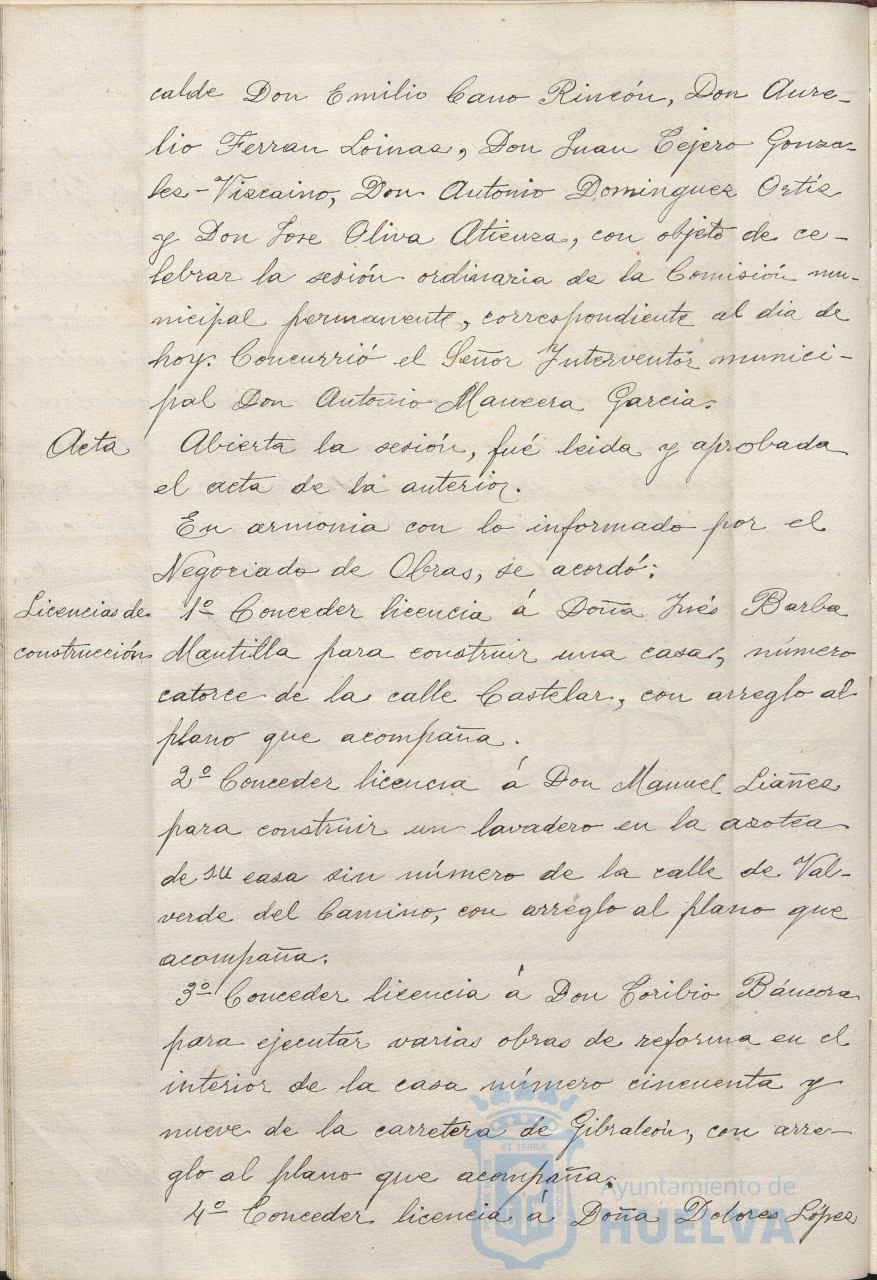 calde Don Emilio Cano Rincón, Don Aure-
lio Ferran Loinaz, Don Juan Tejero Gonza-
lez-Vizcaino, Don Antonio Dominguez Ortíz
y Don Jose Oliva Atienza, con objeto de ce-
lebrar la sesión ordinaria de la Comisión mu-
nicipal permanente, correspondiente al dia de
hoy. Concurrió el Señor Interventor munici-
pal Don Antonio Mancera Garcia.
Acta Abierta la sesión, fué leida y aprobada
el acta de la anterior.
En armonia con lo informado por el
Negociado de Obras, se acordó:
Licencias de 1º Conceder licencia á Doña Inés Barba
construcción Mantilla para construir una casa, número
catorce de la calle Castelar, con arreglo al
plano que acompaña.
2º Conceder licencia á Don Manuel Liáñez
para construir un lavadero en la azotea
de su casa sin número de la calle de Val-
verde del Camino, con arreglo al plano que
acompaña.
3º Conceder licencia á Don Toribio Báncora
para ejecutar varias obras de reforma en el
interior de la casa número cincuenta y
nueve de la carretera de Gibraleón, con arre-
glo al plano que acompaña.
4º Conceder licencia á Doña Dolores López
ET TERRÆ
Ayuntamiento de
HUELVA